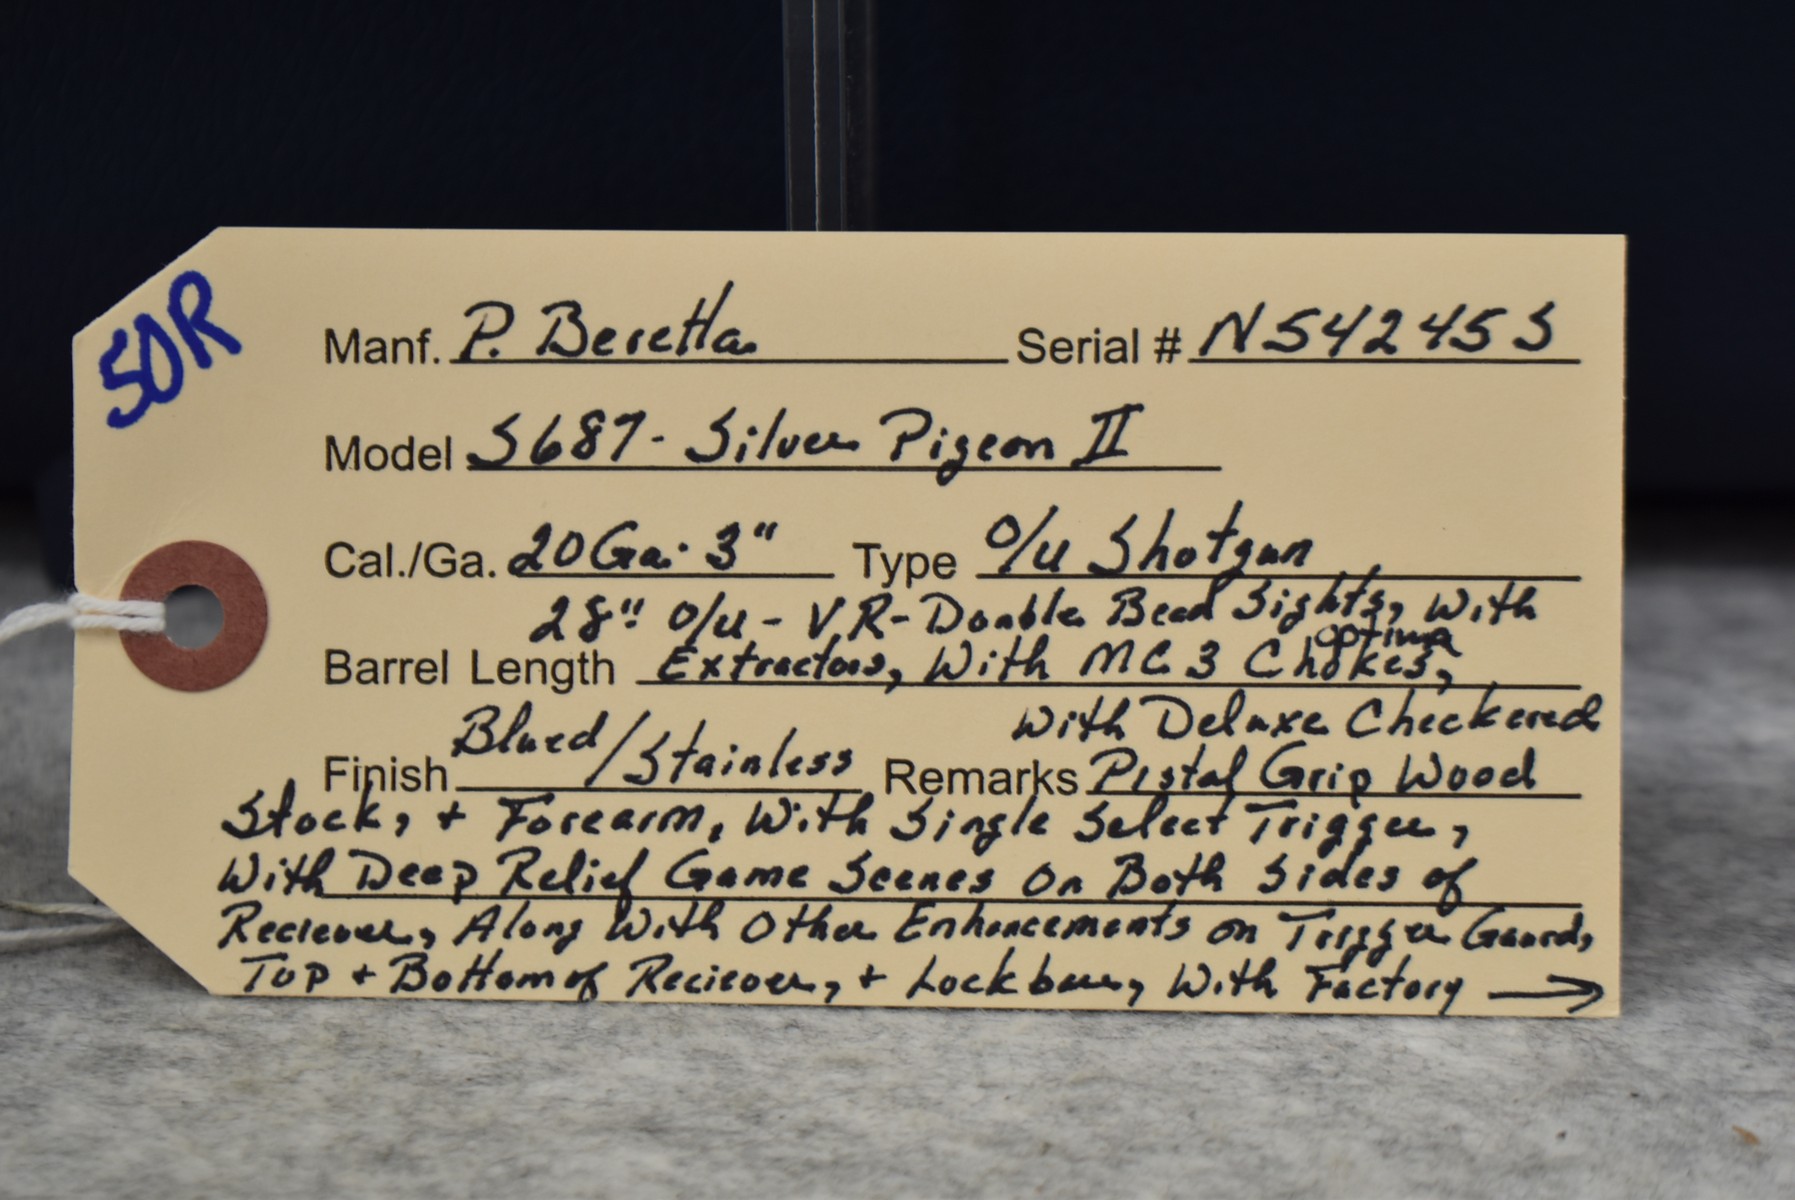 50R
Manf. P. Beretta Serial # N54245S
Model S687- Silver Pigeon II
Cal./Ga. 20Ga. 3" Type O/U Shotgun
28" O/U - VR- Double Bead Sights, With
optima
Barrel Length Extractors, With MC3 Chokes,
With Deluxe Checkered
Finish Blued/Stainless Remarks Pistal Grip Wood
Stock, + Forearm, With Single Select Trigger,
With Deep Relief Game Scenes On Both Sides of
Reciever, Along With Other Enhancements on Trigger Guard,
Top + Bottom of Reciever, + Lockbar, With Factory →